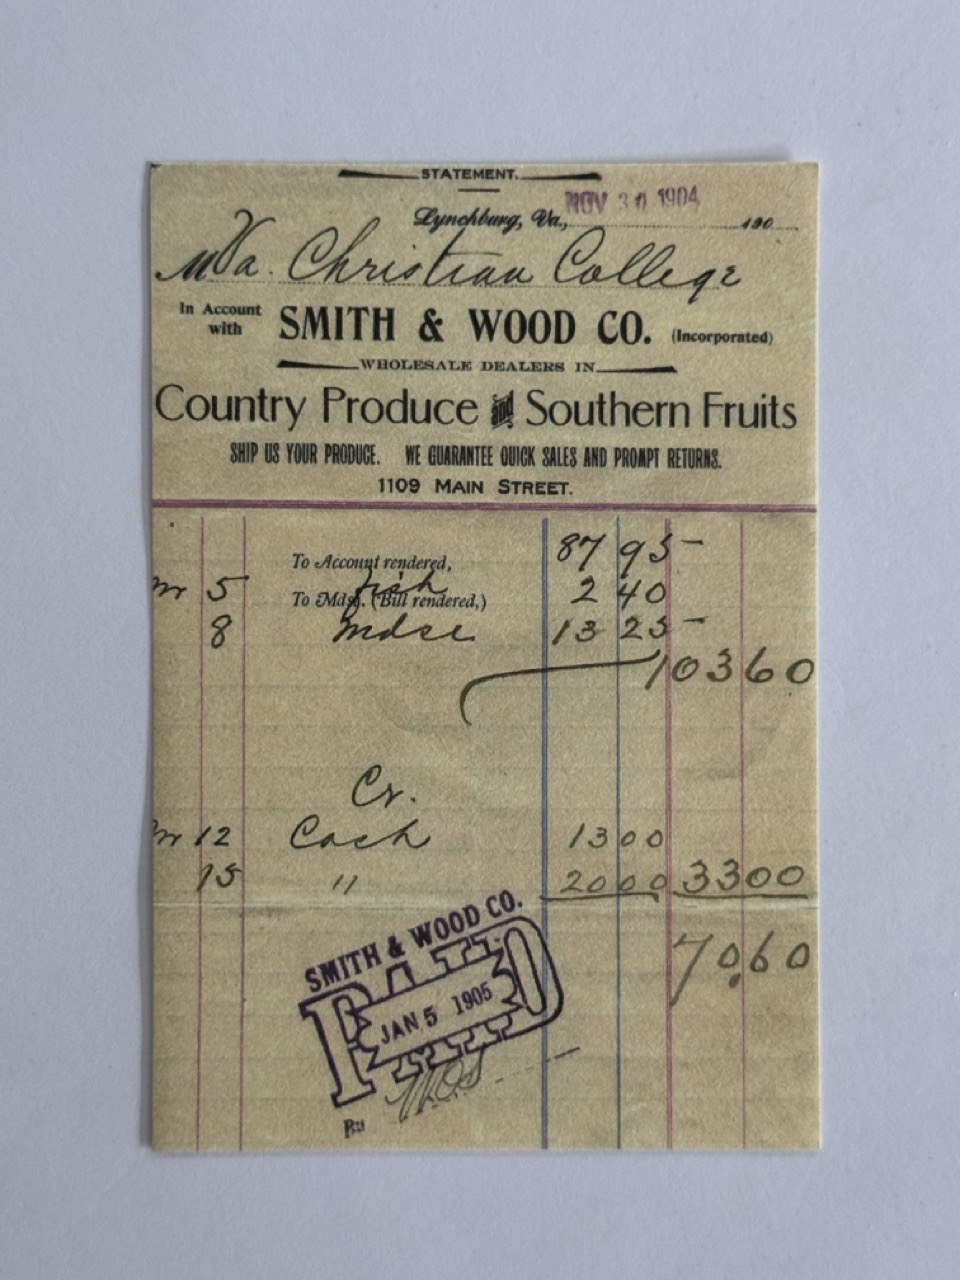 STATEMENT.
NOV 30 1904
Lynchburg, Va., 190
M Va. Christian College
In Account with SMITH & WOOD CO. (Incorporated)
WHOLESALE DEALERS IN
Country Produce and Southern Fruits
SHIP US YOUR PRODUCE. WE GUARANTEE QUICK SALES AND PROMPT RETURNS.
1109 MAIN STREET.
To Account rendered, 87 95
5 To Mdse. (Bill rendered,) fish 2 40
8 Mdse 13 25
103 60
Cr.
12 Cash 13 00
15 " 20 00 33 00
70.60
SMITH & WOOD CO.
PAID
JAN 5 1905
By